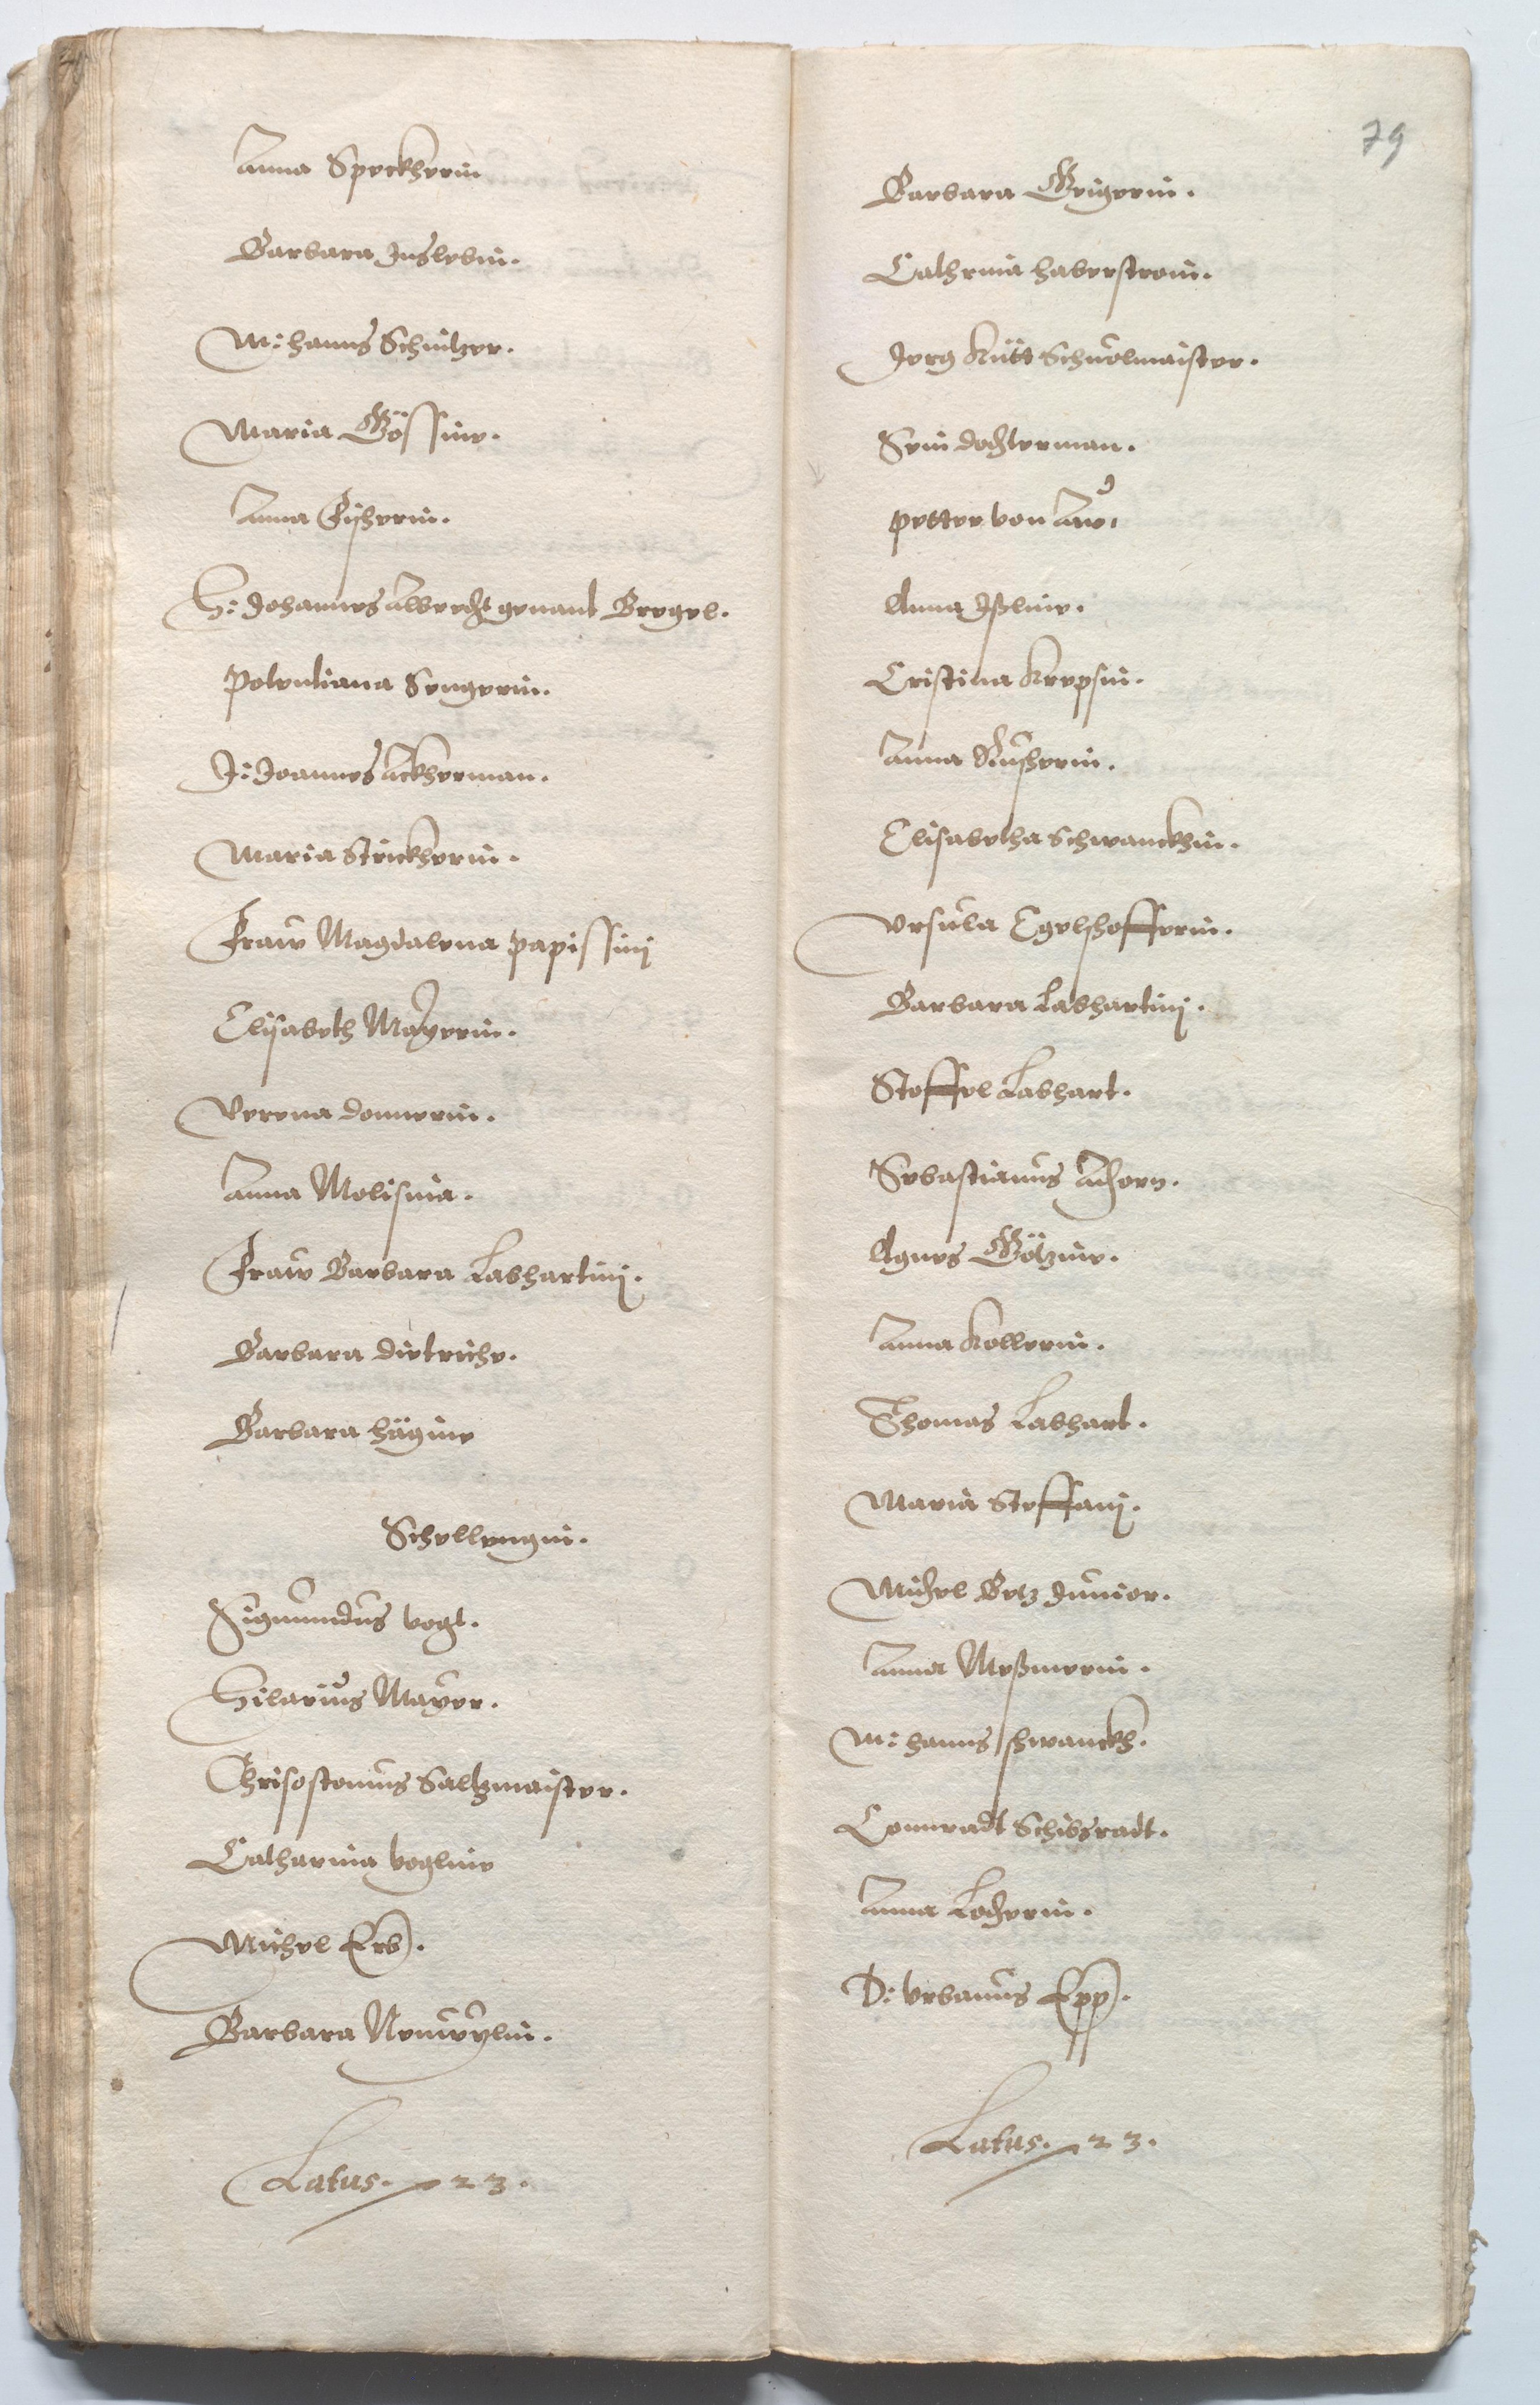 Anna Speckherin
Barbara Inslebin.
M: hanns Schnitzer.
Maria Gössine.
Anna Fisherin.
H: Johannes Albrecht genant Bregel.
Potentiana Sengerin.
J: Joannes Ackherman.
Maria Strickherin.
Fraw Magdalena papissinj
Elisabeth Mayerin.
Verena donnerin.
Anna Molisina.
Fraw Barbara Labhartinj.
Barbara dietriche.
Barbara hägine
Schellengin.
Sigmundus vogt.
Hilarius Mayer.
Chrisostomus Saltzmaister.
Catharina vogline
Michel Erb.
Barbara Neuweylin.
Latus. 23.
79
Barbara Geigerin.
Cathrina haberstroin.
Jerg Kütt Schuolmaister.
Sein dochterman.
petter von Aw.
Anna Ißline.
Cristina Krepsin.
Anna Rüsherin.
Elisabetha Schwanckhin.
Ursula Egelshofferin.
Barbara Labhartinj.
Stoffel Labhart.
Sebastianus Ahorn.
Agnes Götzine.
Anna Kollerin.
Thomas Labhart.
Maria Steffanj.
Michel Betz Junior.
Anna Meßmerin.
M: hanns shwanckh.
Connradt Schibsradt.
Anna Locherin.
D: Urbanus Epp.
Latus. 23.